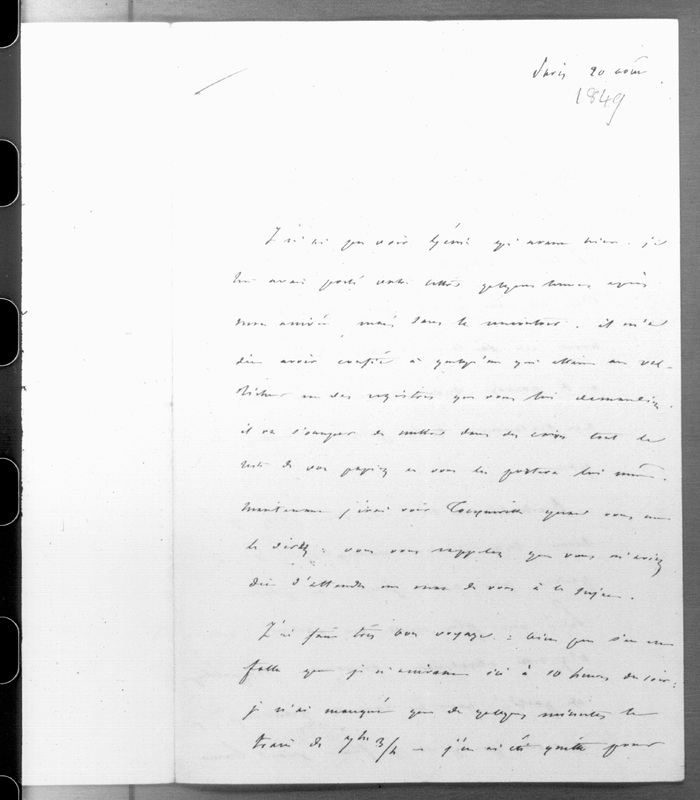 Paris 20 août
1849
J'ai pu voir Génie qui avant hier. je
lui avais porté votre lettre quelques heures après
mon arrivée, mais sans le rencontrer. il m'a
dit avoir confié à quelqu'un qui allait au Val-
Richer un des registres que vous lui demandiez.
il va s'occuper de mettre dans des caisses tout le
reste de vos papiers et vous les portera lui même.
maintenant j'irai voir Tocqueville quand vous me
le direz : vous vous rappelez que vous m'aviez
dit d'attendre un mot de vous à ce sujet.
J'ai fait très bon voyage : bien que s'en
fallu que je n'arrivasse ici à 10 heures du soir :
je n'ai manqué que de quelques minutes le
train de 7hs 3/4 — j'en ai été quitte pour